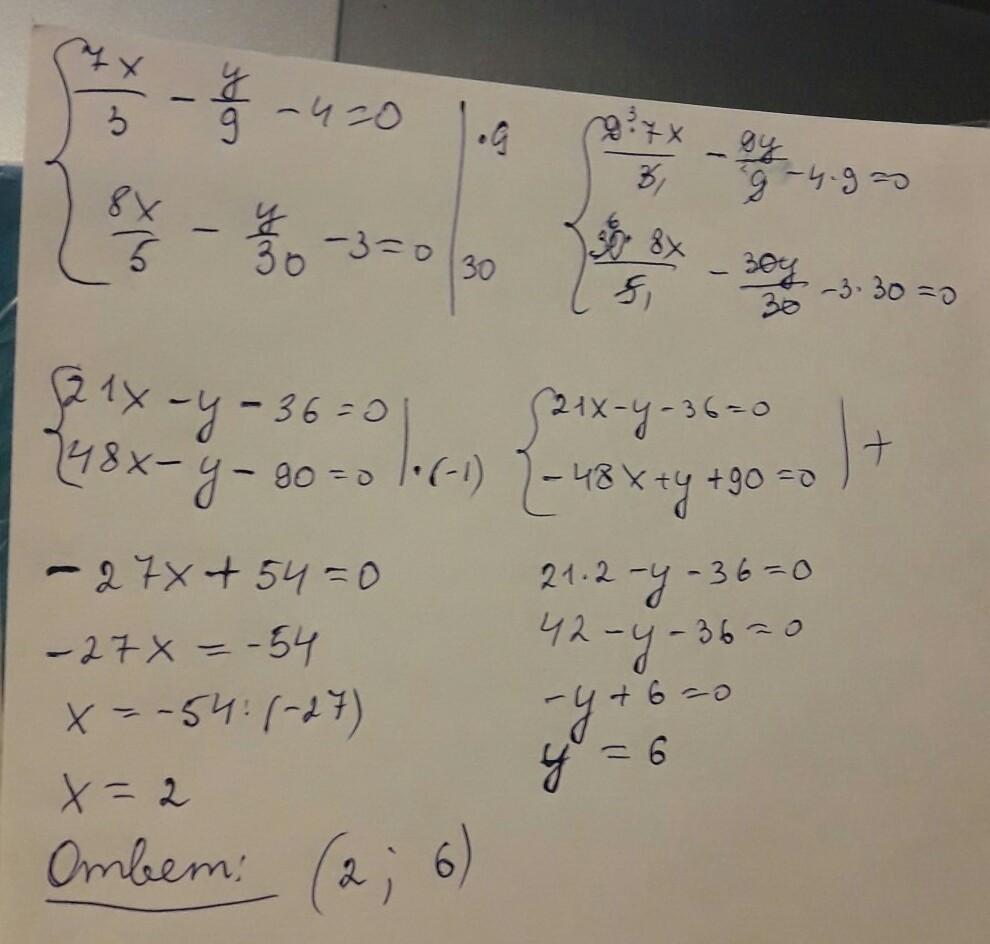 7x/3 - y/9 - 4=0 | ·9
8x/5 - y/30 - 3=0 | 30
9³·7x/3₁ - 9y/9 - 4·9=0
30⁶· 8x/5₁ - 30y/30 - 3·30=0
21x - y - 36=0
48x - y - 90=0 | ·(-1)
21x - y - 36=0
-48x + y + 90=0 | +
-27x + 54=0
-27x = -54
x = -54:(-27)
x = 2
21·2 - y - 36=0
42 - y - 36=0
-y + 6=0
y = 6
Ответ: (2; 6)